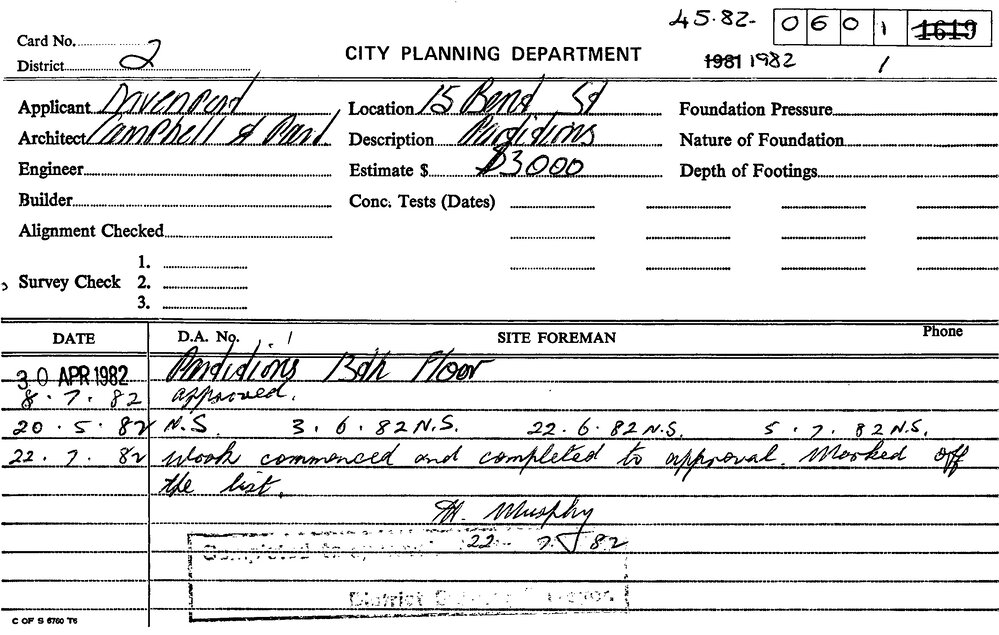 45.82- 0601 1619
Card No. CITY PLANNING DEPARTMENT 1981 1982 1
District 2
Applicant Davenport Location 15 Bent St Foundation Pressure
Architect Campbell & Paul Description Partitions Nature of Foundation
Engineer Estimate $ $3000 Depth of Footings
Builder Conc. Tests (Dates)
Alignment Checked
1.
Survey Check 2.
3.
DATE D.A. No. SITE FOREMAN Phone
30 APR 1982 Partitions 13th Floor
8.7.82 approved.
20.5.82 N.S. 3.6.82 N.S. 22.6.82 N.S. 5.7.82 N.S.
22.7.82 Work commenced and completed to approval. Marked off
the list.
Murphy
22 7 82
Completed to
District
C OF S 6760 T6